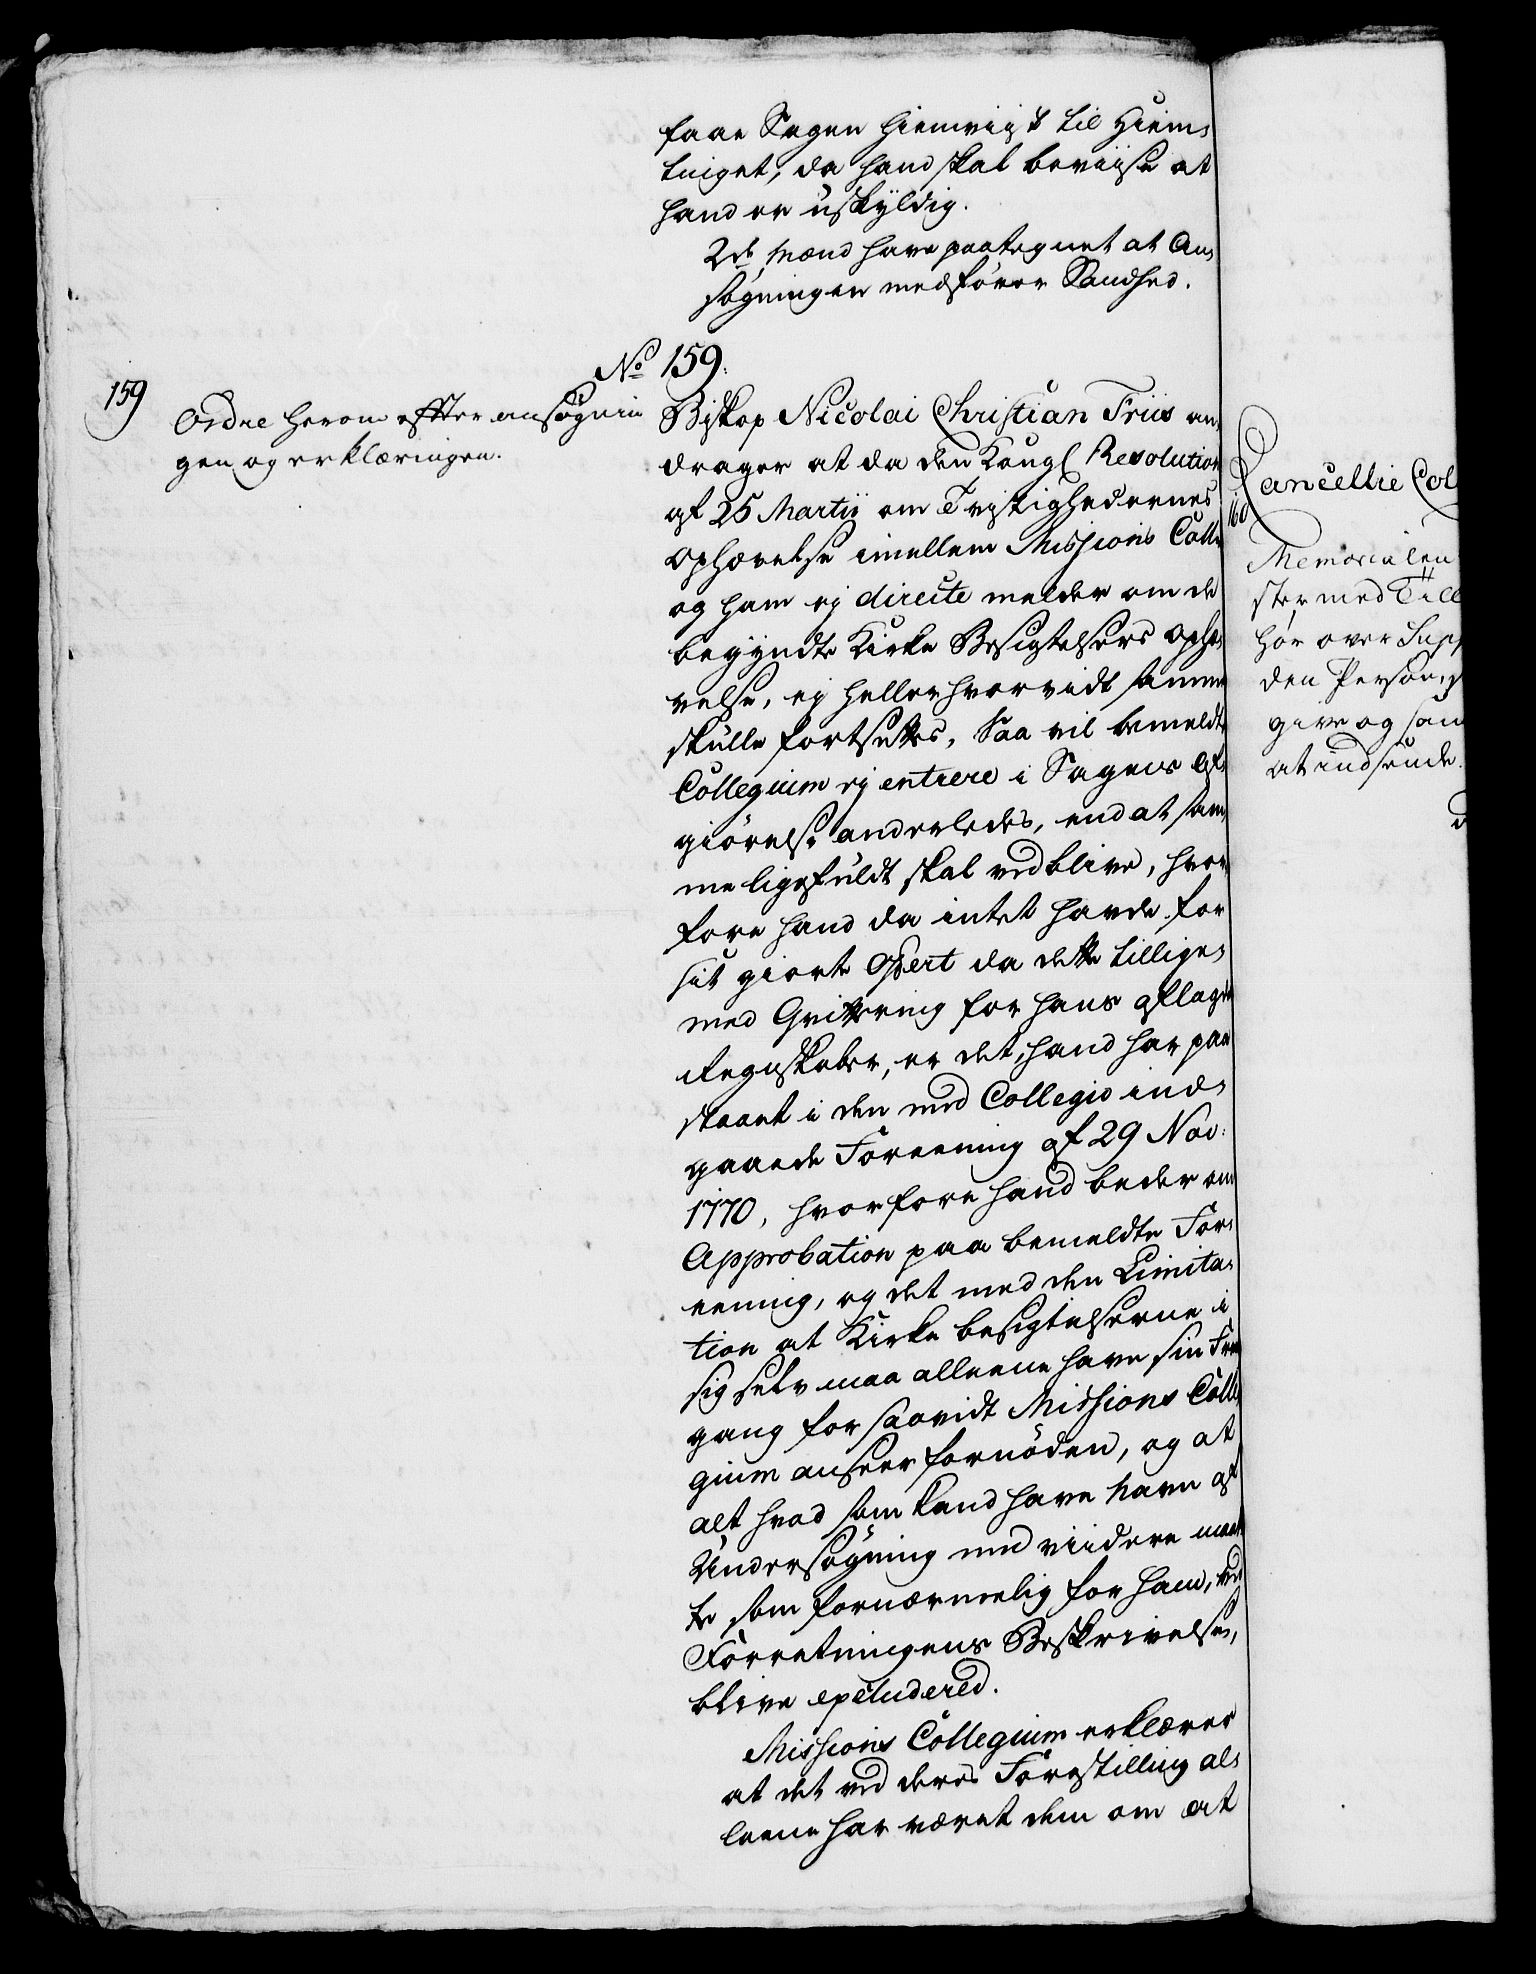 faae Sagen hiemviist til Hiem-
tinget, da hand skal beviise at
hand er uskyldig.
2de Mænd have paategnet at An-
søgningen medfører Sandhed.
No 159.
159
Ordre herom effter ansøgnin
gen og erklæringen.
Biskop Nicolai Christian Friis an-
drager at da den Kongl Resolution
af 25 Martii om Tvistighedernes
Ophævelse imellem Missions Colle
og ham ej directe melder om de
begyndte Kirke Besigtelsers Ophæ-
velse, ej heller hvorvidt samme
skulle fortsettes, saa vil bemeldte
Collegium ej entrere i Sagens Af-
giørelse anderledes, end at sam-
me ligefuldt skal vedblive, hvor-
fore hand da intet havde for
sit giorte Offert da dette tillige-
med Qvittering for hans aflagde
Regnskaber, er det, hand har paa
staaet i den med Collegio ind-
gaaede Foreening af 29 Nov:
1770, hvorfore hand beder om
Approbation paa bemeldte For-
eening, og det med den Limita-
tion at Kirke besigtelserne i
sig selv maa alleene have sin Frem
gang for saavidt Missions Colle
gium anseer fornøden, og at
alt hvad som kand have Navn af
Undersøgning med viidere maat
te som fornærmelig for ham, ved
Forretningens Beskrivelse,
blive excluderet.
Missions Collegium erklærer
at det ved deres Forestilling al-
leene har været dem om at
Cancellie Col
160
Memorialen
ster med Till
hør over Supp
den Person,
give og sam
at indsende.